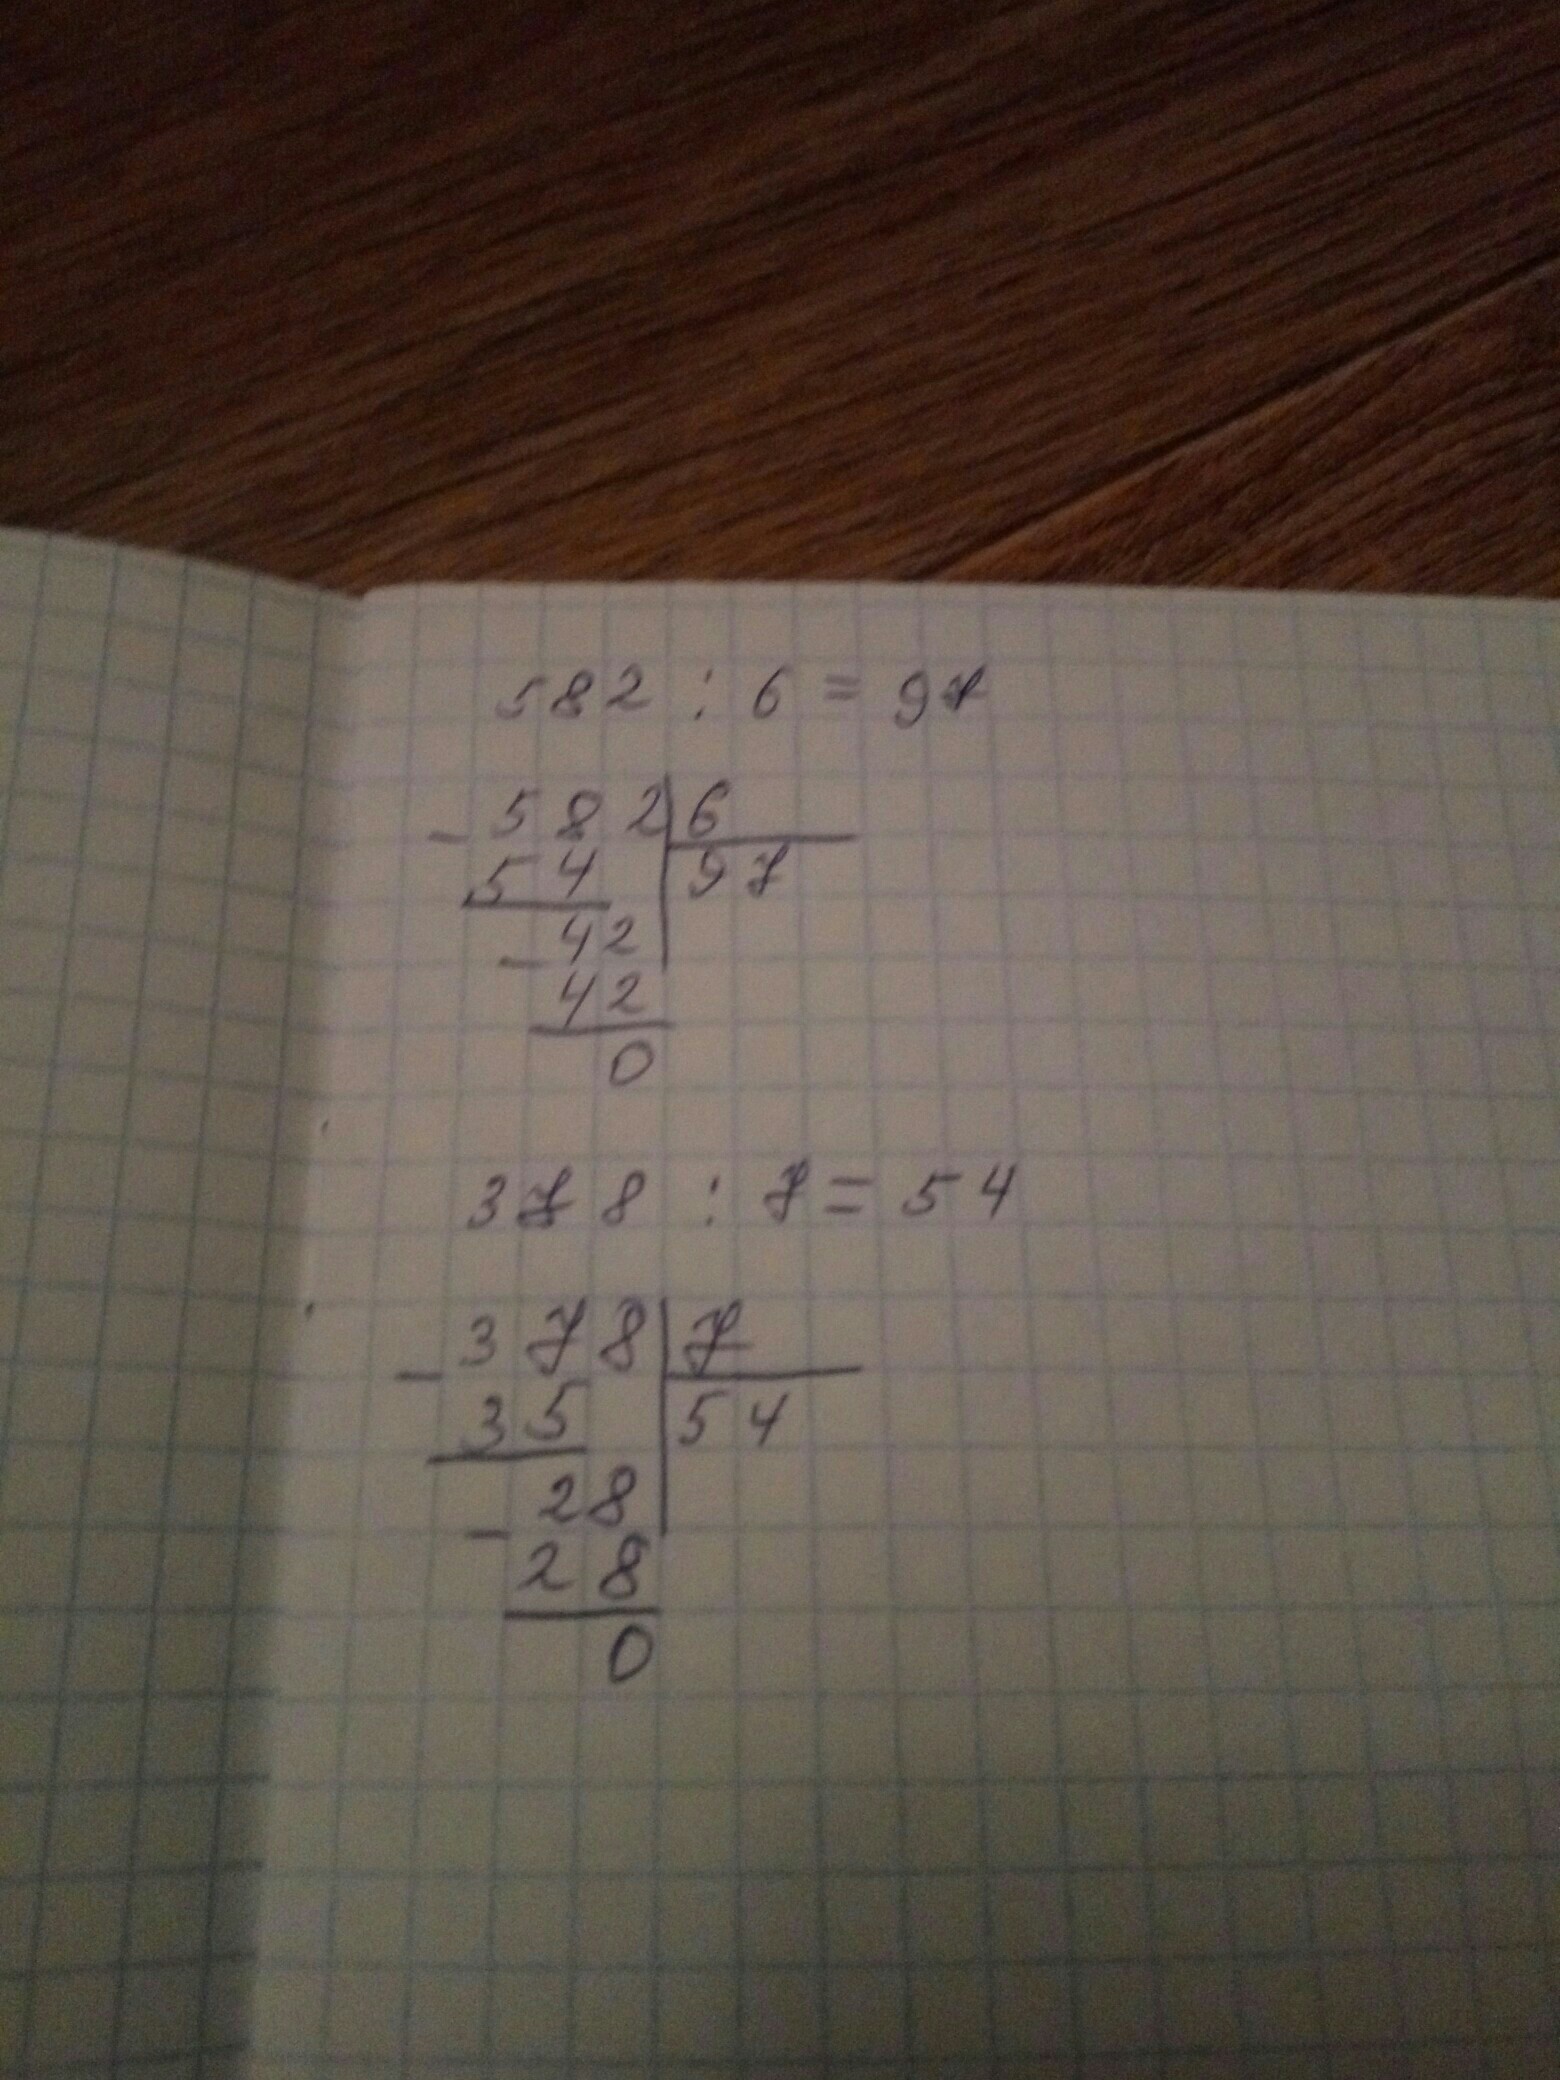 582 : 6 = 97
- 582 | 6
54 | 97
- 42
42
0
378 : 7 = 54
- 378 | 7
35 | 54
- 28
28
0